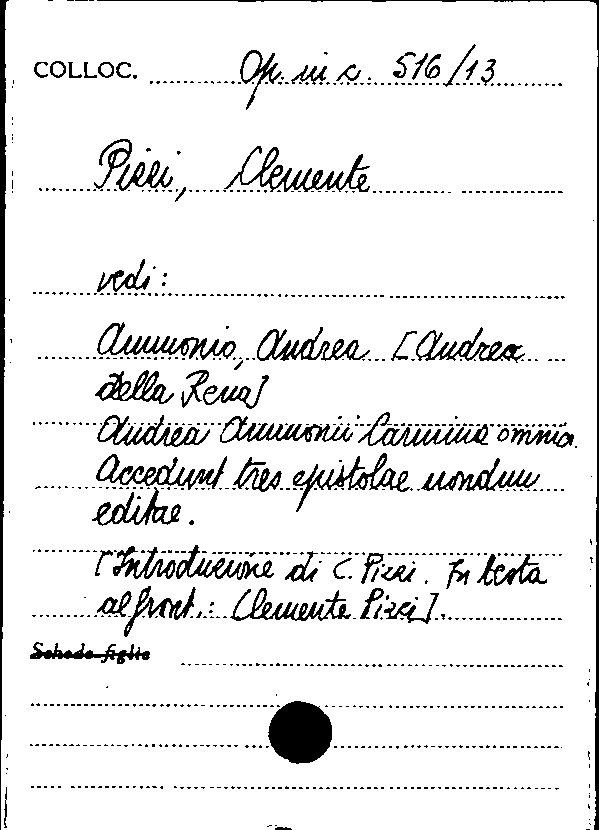 COLLOC. Op. in c. 516/13
Pizzi, Clemente
vedi:
Ammonio, Andrea [Andrea
della Rena]
Andrea Ammonii Carmina omnia.
Accedunt tres epistolae nondum
editae.
[Introduzione di C. Pizzi. In testa
al front.: Clemente Pizzi].
Schede figlie